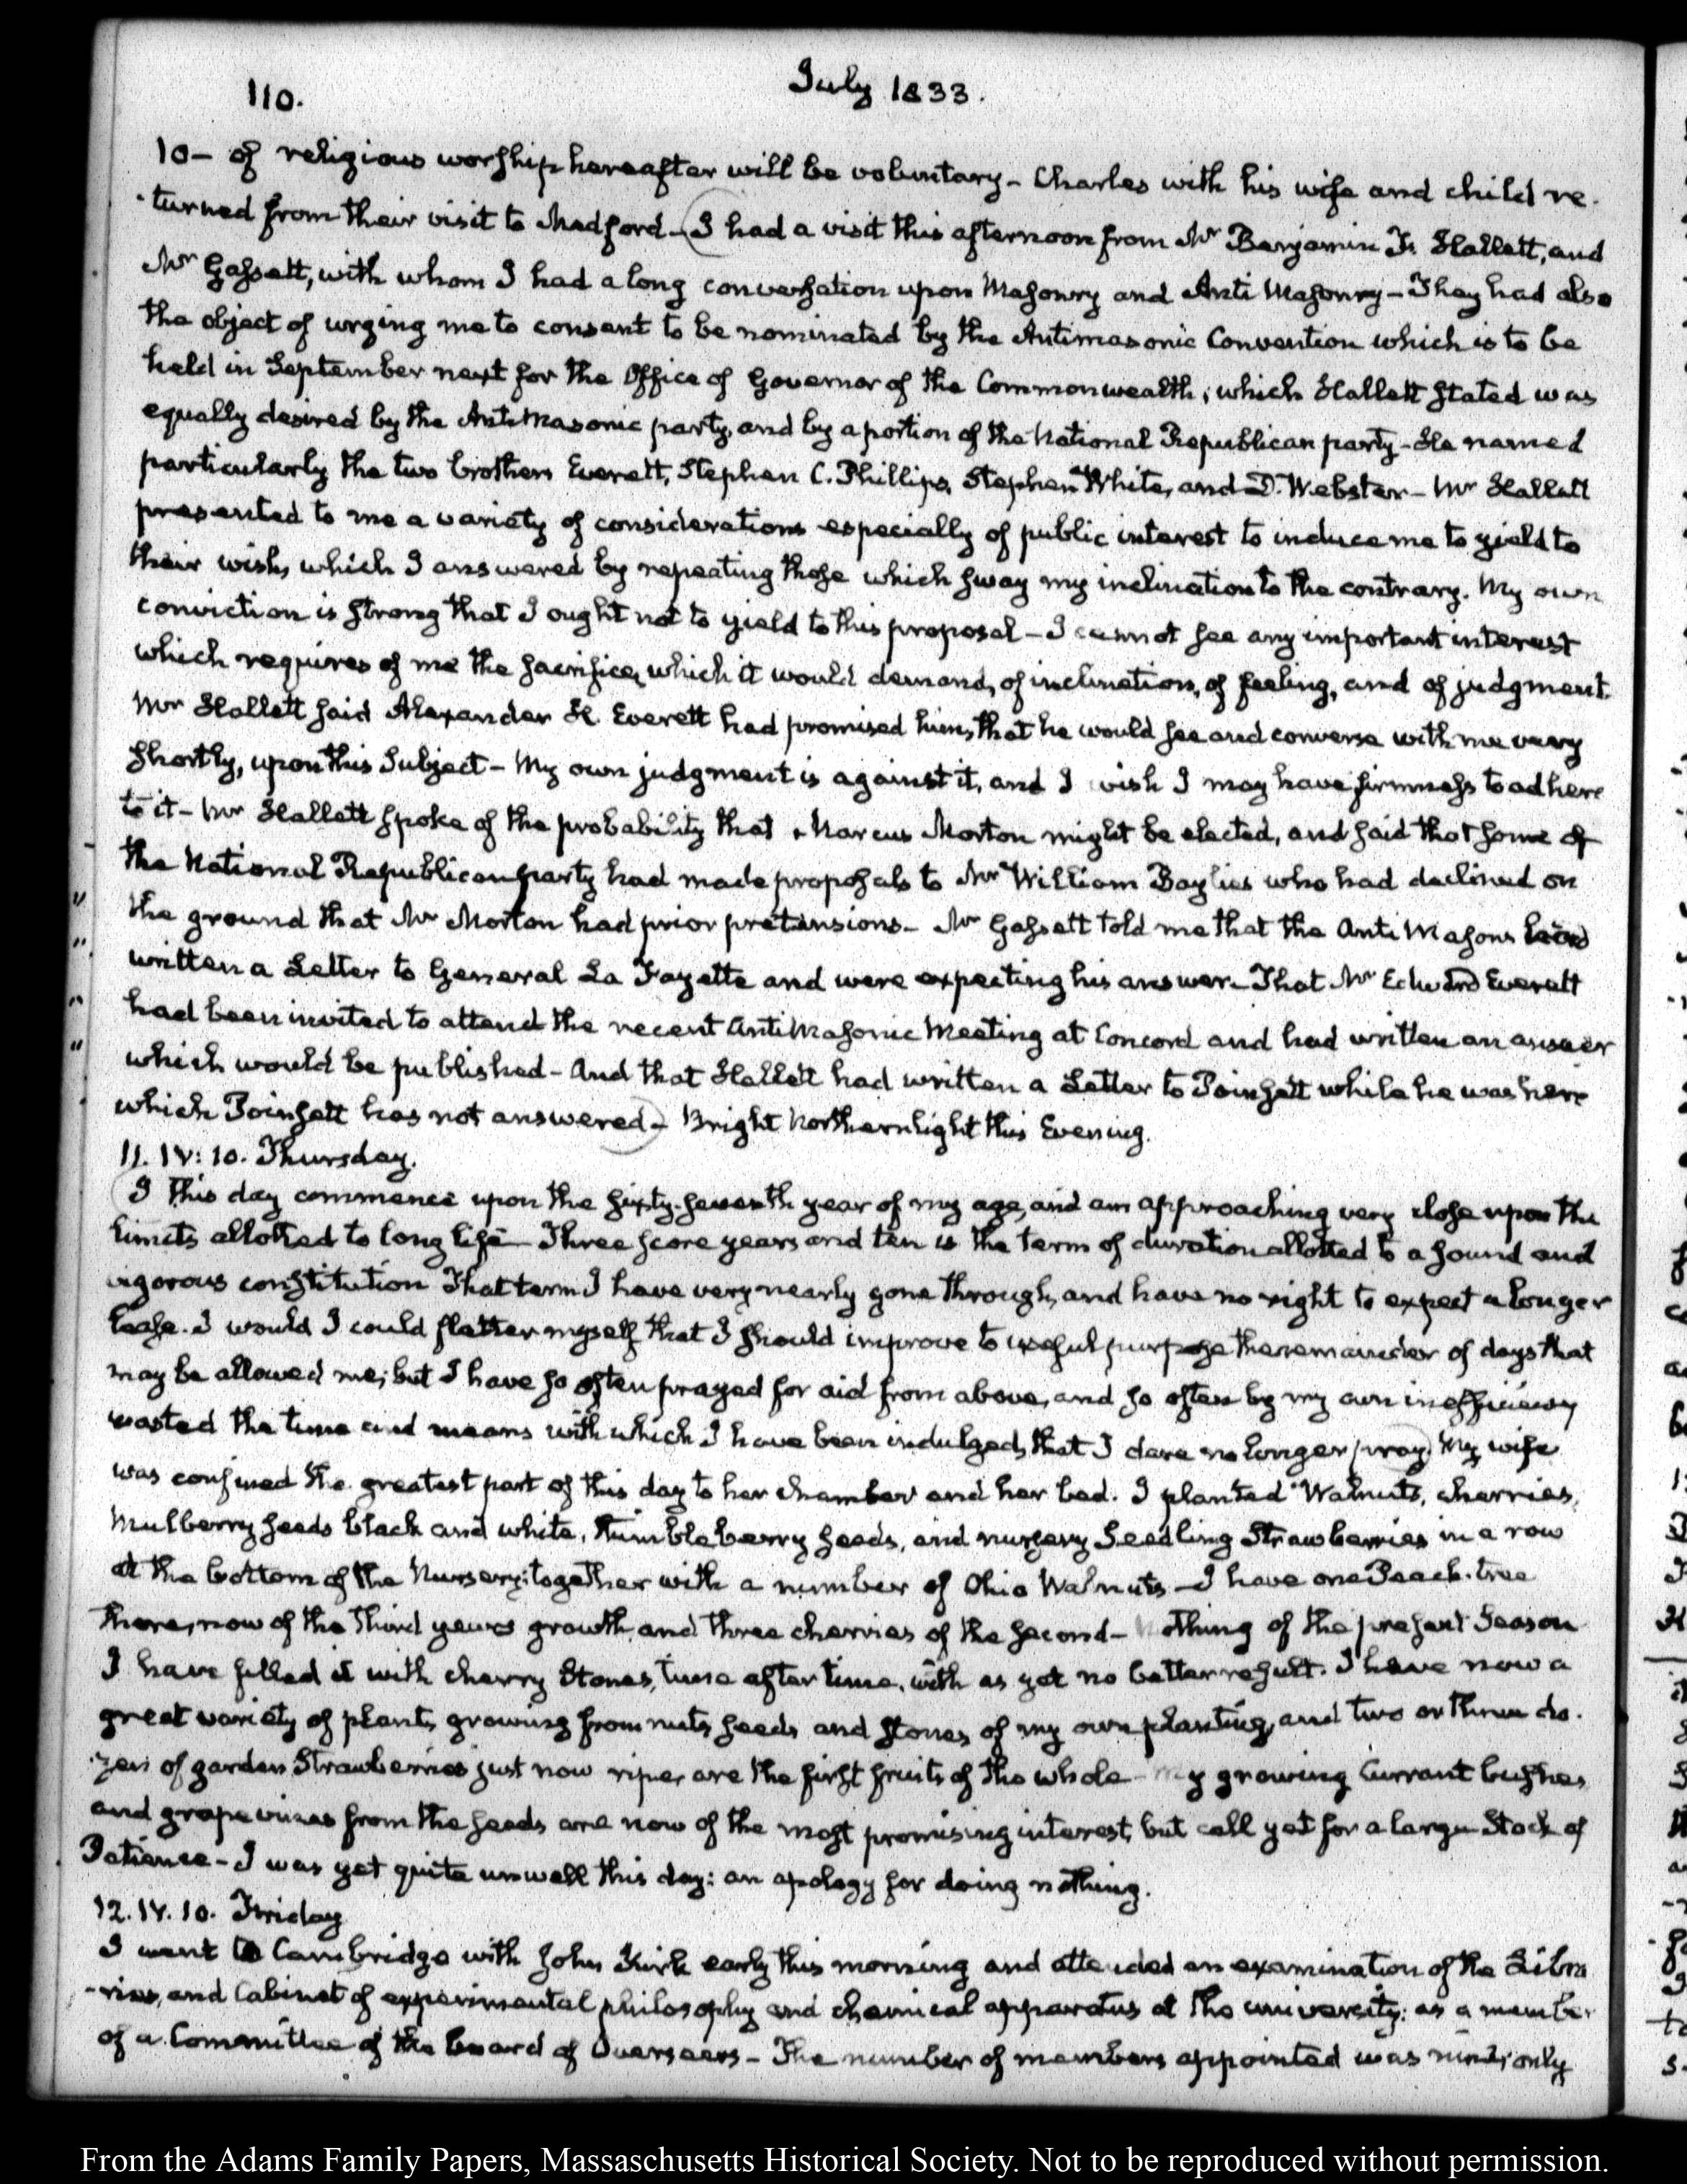 110.
July 1833.
10- of religious worship hereafter will be voluntary - Charles with his wife and child re-
-turned from their visit to Medford - I had a visit this afternoon from Mr Benjamin F. Hallett, and
Mr Gassett, with whom I had a long conversation upon Masonry and Anti Masonry - They had also
the object of urging me to consent to be nominated by the Antimasonic Convention which is to be
held in September next for the Office of Governor of the Commonwealth; which Hallett stated was
equally desired by the Anti Masonic party, and by a portion of the National Republican party - He named
particularly the two brothers Everett, Stephen C. Phillips, Stephen White, and D. Webster - Mr Hallett
presented to me a variety of considerations especially of public interest to induce me to yield to
their wish, which I answered by repeating those which sway my inclination to the contrary. My own
conviction is strong that I ought not to yield to this proposal - I cannot see any important interest
which requires of me the sacrifice, which it would demand, of inclination, of feeling, and of judgment.
Mr Hallett said Alexander H. Everett had promised him, that he would see and converse with me very
shortly, upon this Subject - My own judgment is against it, and I wish I may have firmness to adhere
to it - Mr Hallett spoke of the probability that Marcus Morton might be elected, and said that some of
the National Republican party had made proposals to Mr William Baylies who had declined on
the ground that Mr Morton had prior pretensions - Mr Gassett told me that the Anti Masons had
written a Letter to General La Fayette and were expecting his answer - That Mr Edward Everett
had been invited to attend the recent Anti Masonic Meeting at Concord and had written an answer
which would be published - And that Hallett had written a Letter to Poinsett while he was here
which Poinsett has not answered - Bright Northern light this Evening.
11. IV: 10. Thursday.
I this day commence upon the sixty-seventh year of my age, and am approaching very close upon the
limits allotted to long life - Three score years and ten is the term of duration allotted to a sound and
vigorous constitution That term I have very nearly gone through, and have no right to expect a longer
lease. I would I could flatter myself that I should improve to useful purpose the remainder of days that
may be allowed me; but I have so often prayed for aid from above, and so often by my own inefficiency
wasted the time and means with which I have been indulged, that I dare no longer pray. My wife
was confined the greatest part of this day to her chamber and her bed. I planted Walnuts, cherries,
Mulberry seeds black and white, thimbleberry seeds, and nursery Seedling Strawberries in a row
at the bottom of the Nursery; together with a number of Ohio Walnuts - I have one Peach-tree
there, now of the third years growth, and three cherries of the second - Nothing of the present Season
I have filled it with cherry Stones, time after time, with as yet no better result. I have now a
great variety of plants, growing from nuts, seeds and stones of my own planting, and two or three do-
-zen of garden Strawberries just now ripe, are the first fruits of the whole - My growing Currant bushes
and grape vines from the seeds are now of the most promising interest, but call yet for a large Stock of
Patience - I was yet quite unwell this day: an apology for doing nothing.
12. IV. 10. Friday
I went to Cambridge with John Kirk early this morning and attended an examination of the Libra
-ries, and Cabinet of experimental philosophy and chemical apparatus at the university: as a member
of a Committee of the board of Overseers - The number of members appointed was nine; only
From the Adams Family Papers, Massachusetts Historical Society. Not to be reproduced without permission.